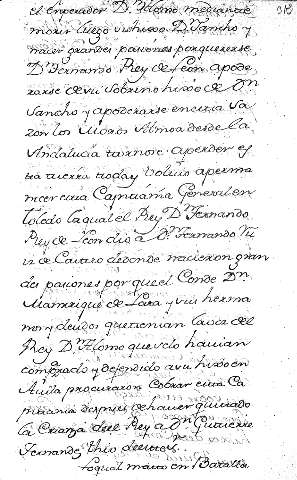 el enperador Dn. Alonso mediante
morir luego su hixo Dn. Sancho y
nacer grandes pasiones por quererse
Dn. Fernando Rey de Leon apode
rarse de su Sobrino hixo de Dn
Sancho y apoderarse en esta sa
zon los Moros Almoades de la
Andalucia tornose a perder es
ta tierra toda y volvio a perma
necer esta Capitania General en
Toledo la qual el Rey Dn. Fernando
Rey de Leon dio a Dn. Fernando Ru
iz de Castro de donde nacieron gran
des pasiones por que el Conde Dn.
Manrrique de Lara y sus herma
nos y deudos que tenian la voz del
Rey Dn. Alonso que velo havian
comprado y defendido a su hixo en
Avila procuraron cobrar esta Ca
pitania despues de haver quitado
la Crianza del Rey a Dn. Gutierre
Fernandez thio de estos
lo qual mato en Batalla